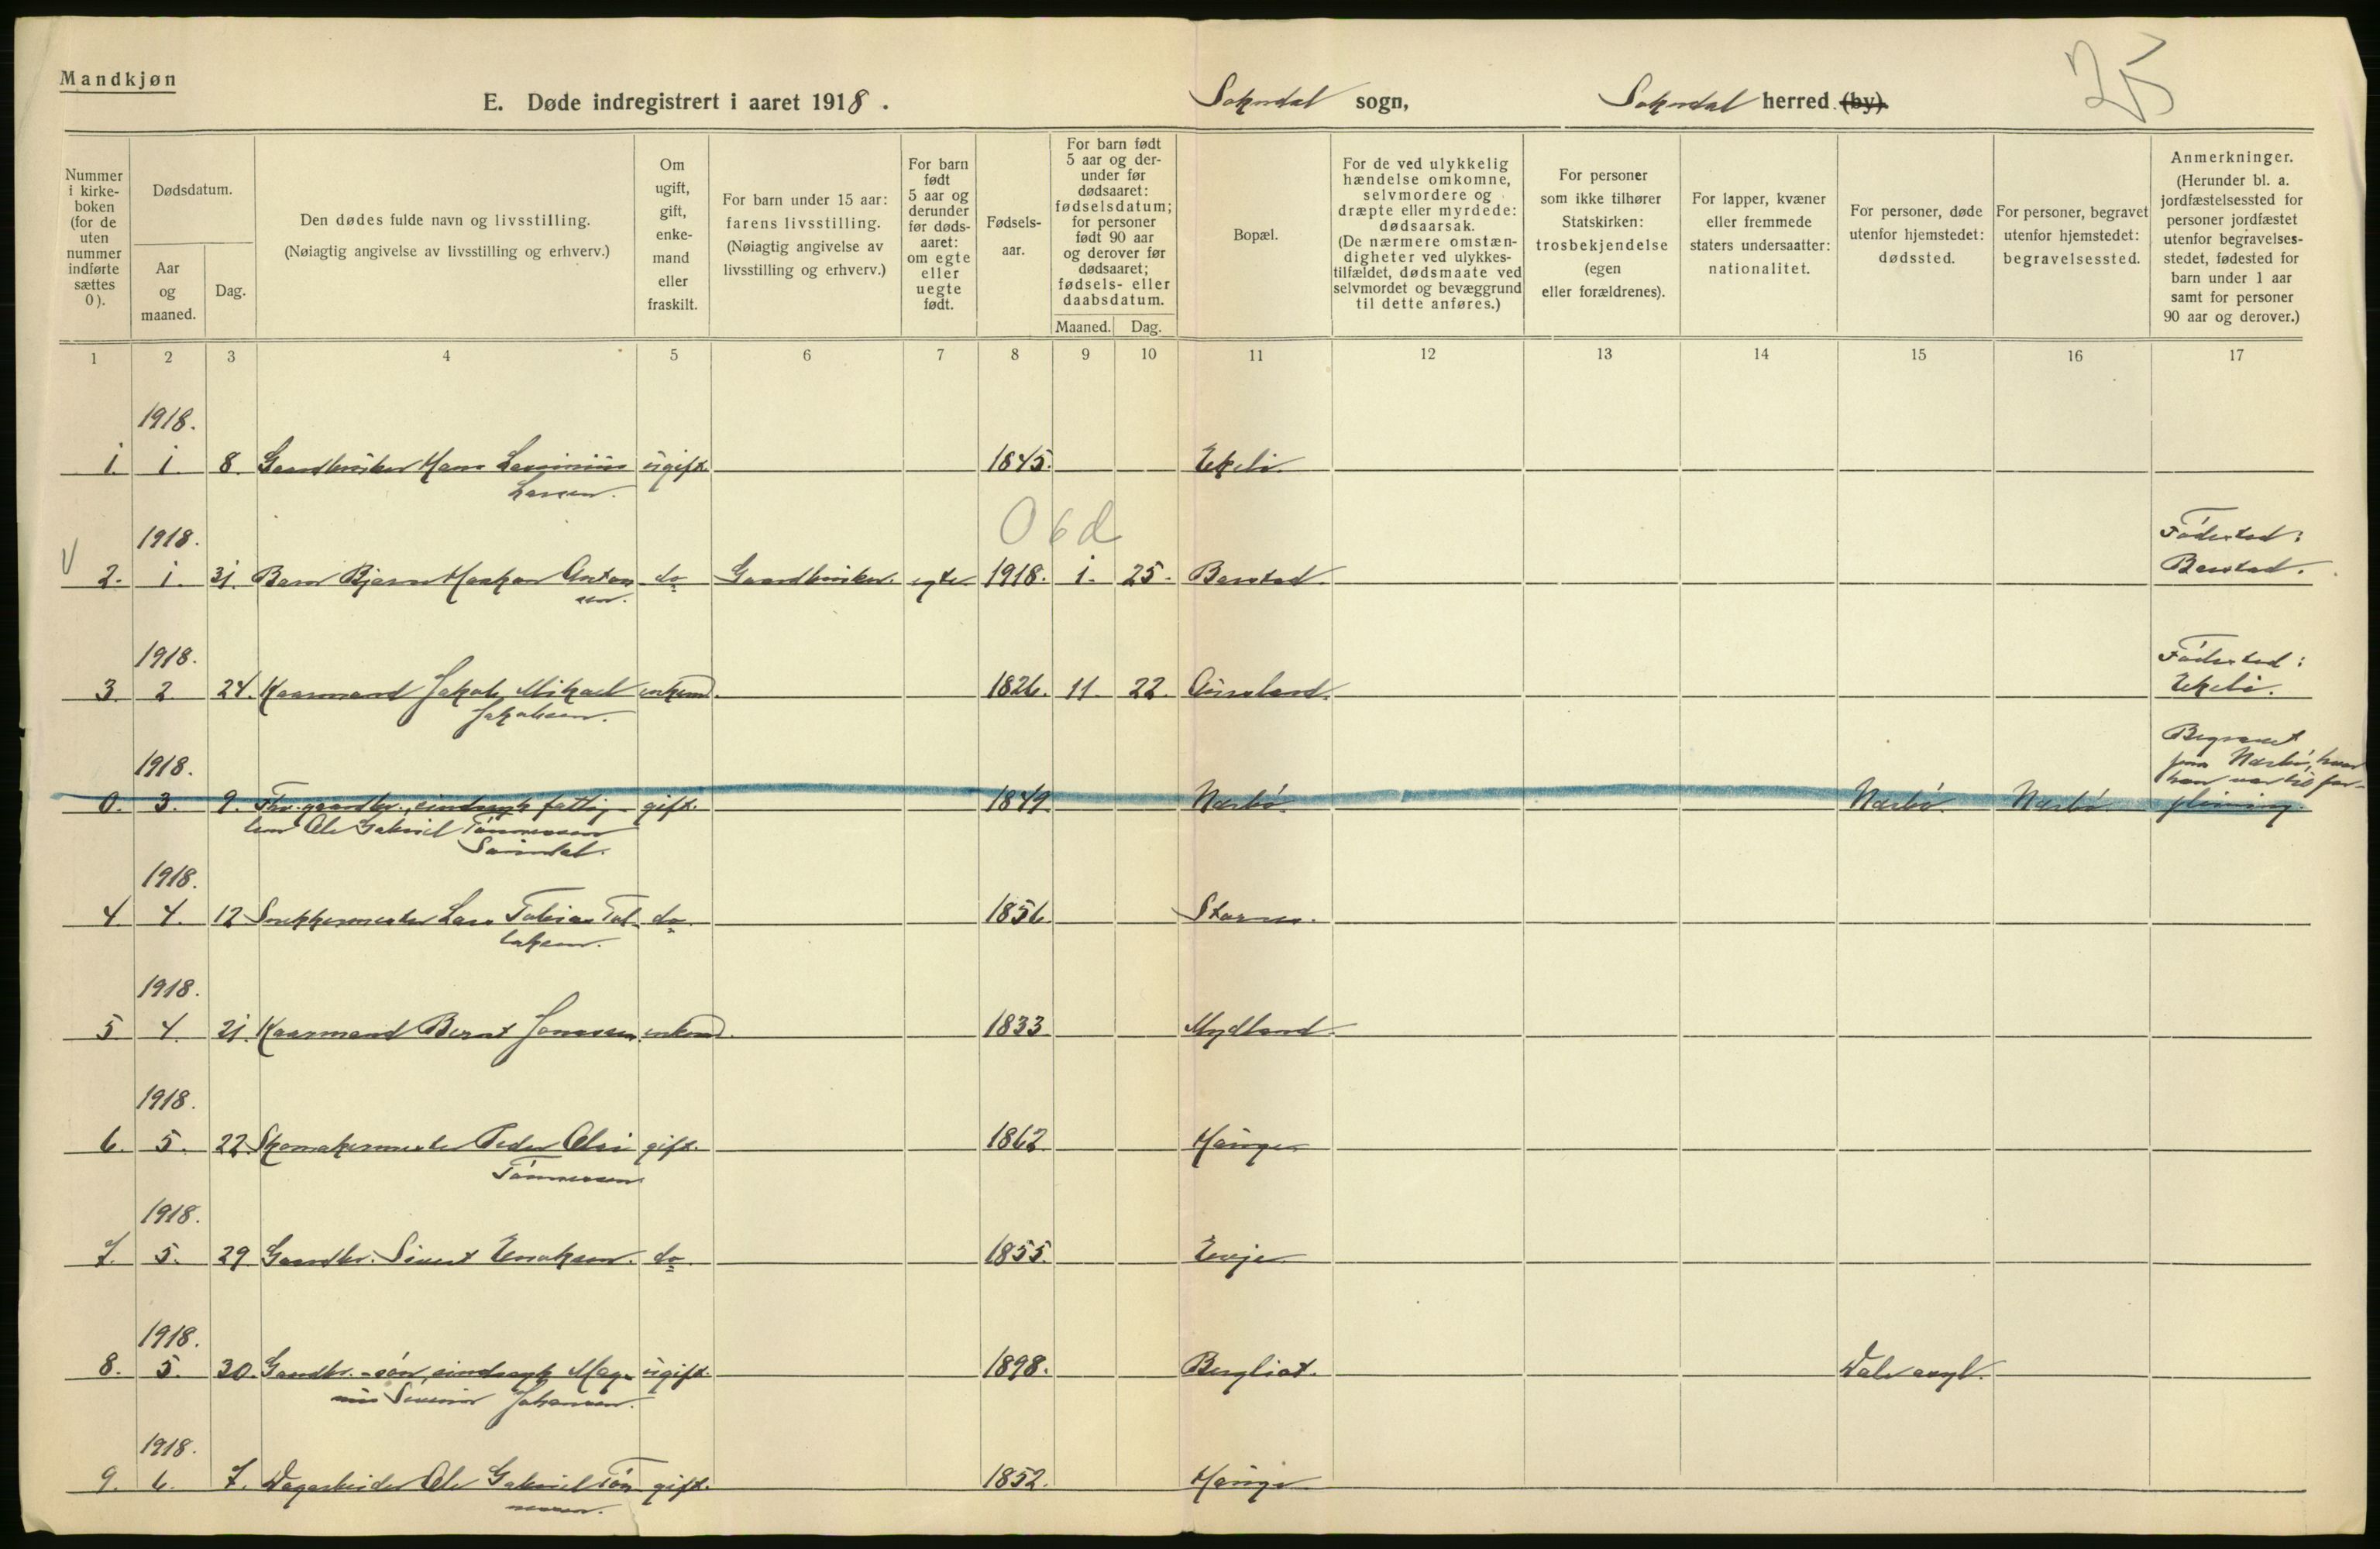 Mandkjøn
E. Døde indregistrert i aaret 1918.
Sokndal sogn,
Sokndal herred (by)
25
Nummer i kirke-boken (for de uten nummer indførte sættes 0).
Dødsdatum.
Aar og maaned.
Dag.
Den dødes fulde navn og livsstilling.
(Nøiagtig angivelse av livsstilling og erhverv.)
Om ugift, gift, enke-mand eller fraskilt.
For barn under 15 aar: farens livsstilling.
(Nøiagtig angivelse av livsstilling og erhverv.)
For barn født 5 aar og derunder før døds-aaret: om egte eller uegte født.
Fødsels-aar.
For barn født 5 aar og der-under før dødsaaret: fødselsdatum; for personer født 90 aar og derover før dødsaaret; fødsels- eller daabsdatum.
Maaned.
Dag.
Bopæl.
For de ved ulykkelig hændelse omkomne, selvmordere og dræpte eller myrdede: dødsaarsak.
(De nærmere omstæn-digheter ved ulykkes-tilfældet, dødsmaate ved selvmordet og bevæggrund til dette anføres.)
For personer som ikke tilhører Statskirken: trosbekjendelse (egen eller forældrenes).
For lapper, kvæner eller fremmede staters undersaatter: nationalitet.
For personer, døde utenfor hjemstedet: dødssted.
For personer, begravet utenfor hjemstedet: begravelsessted.
Anmerkninger.
(Herunder bl. a. jordfæstelsessted for personer jordfæstet utenfor begravelses-stedet, fødested for barn under 1 aar samt for personer 90 aar og derover.)
1 2 3 4 5 6 7 8 9 10 11 12 13 14 15 16 17
1918.
1. 1. 8. Gaardbruker Hans Severinius ugift. 1845. Ekeli.
Larsen.
1918. 0 6 d Födested:
V 2. 1. 31. Barn Bjarne Haakon Anton- do Gaardbruker. egte 1918. 1. 25. Barstad. Barstad.
sen.
1918. Födested:
3. 2. 24. Kaarmand Jakob Mikael enkem. 1826. 11. 22. Ekeli.
Jakobsen.
1918. Begravet
fra Nærbö, hvor
han var til for-
0. 3. 9. Fhv. gaardbr., sindssyk fattig- gift. 1849. Nærbö. Nærbö. Nærbö. pleining.
lem Ole Gabriel Tönnessen
1918.
4. 4. 12 Snekkermester Lars Tobias Tol- do. 1856 Stornes.
laksen.
1918.
5. 4. 21. Kaarmand Bernt Jonassen enkem. 1833. Mydland.
1918.
6. 5. 22. Skomakermester Peder Olai gift. 1862. Hauge.
Tönnessen
1918.
7. 5. 29 Gaardbr. Sivert Enoksen. do. 1855. Evje.
1918.
8. 5. 30. Gaardbr.-sön, sindssyk Mag- ugift. 1898. Bergliot. Dale asyl.
nus Severin Johansen.
1918.
9. 6. 7. Ole Gabriel Tön- gift. 1852. Hauge
nessen.